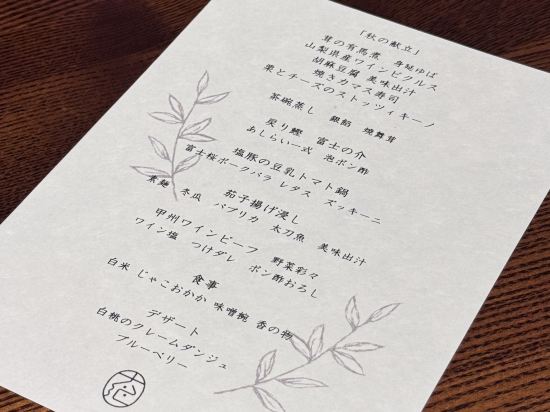 「秋の献立」
茸の有馬煮　身延ゆば
山梨県産ワインピクルス
胡麻豆腐 美味出汁
焼きカマス寿司
栗とチーズのストッツィキーノ
茶碗蒸し　銀餡　焼舞茸
戻り鰹　富士の介
あしらい一式　泡ポン酢
塩豚の豆乳トマト鍋
富士桜ポークバラ　レタス　ズッキーニ
茄子揚げ浸し
素麺　冬瓜　パプリカ　太刀魚　美味出汁
甲州ワインビーフ　野菜彩々
ワイン塩　つけダレ　ポン酢おろし
食事
白米 じゃこおかか 味噌椀 香の物
デザート
白桃のクレームダンジュ
ブルーベリー